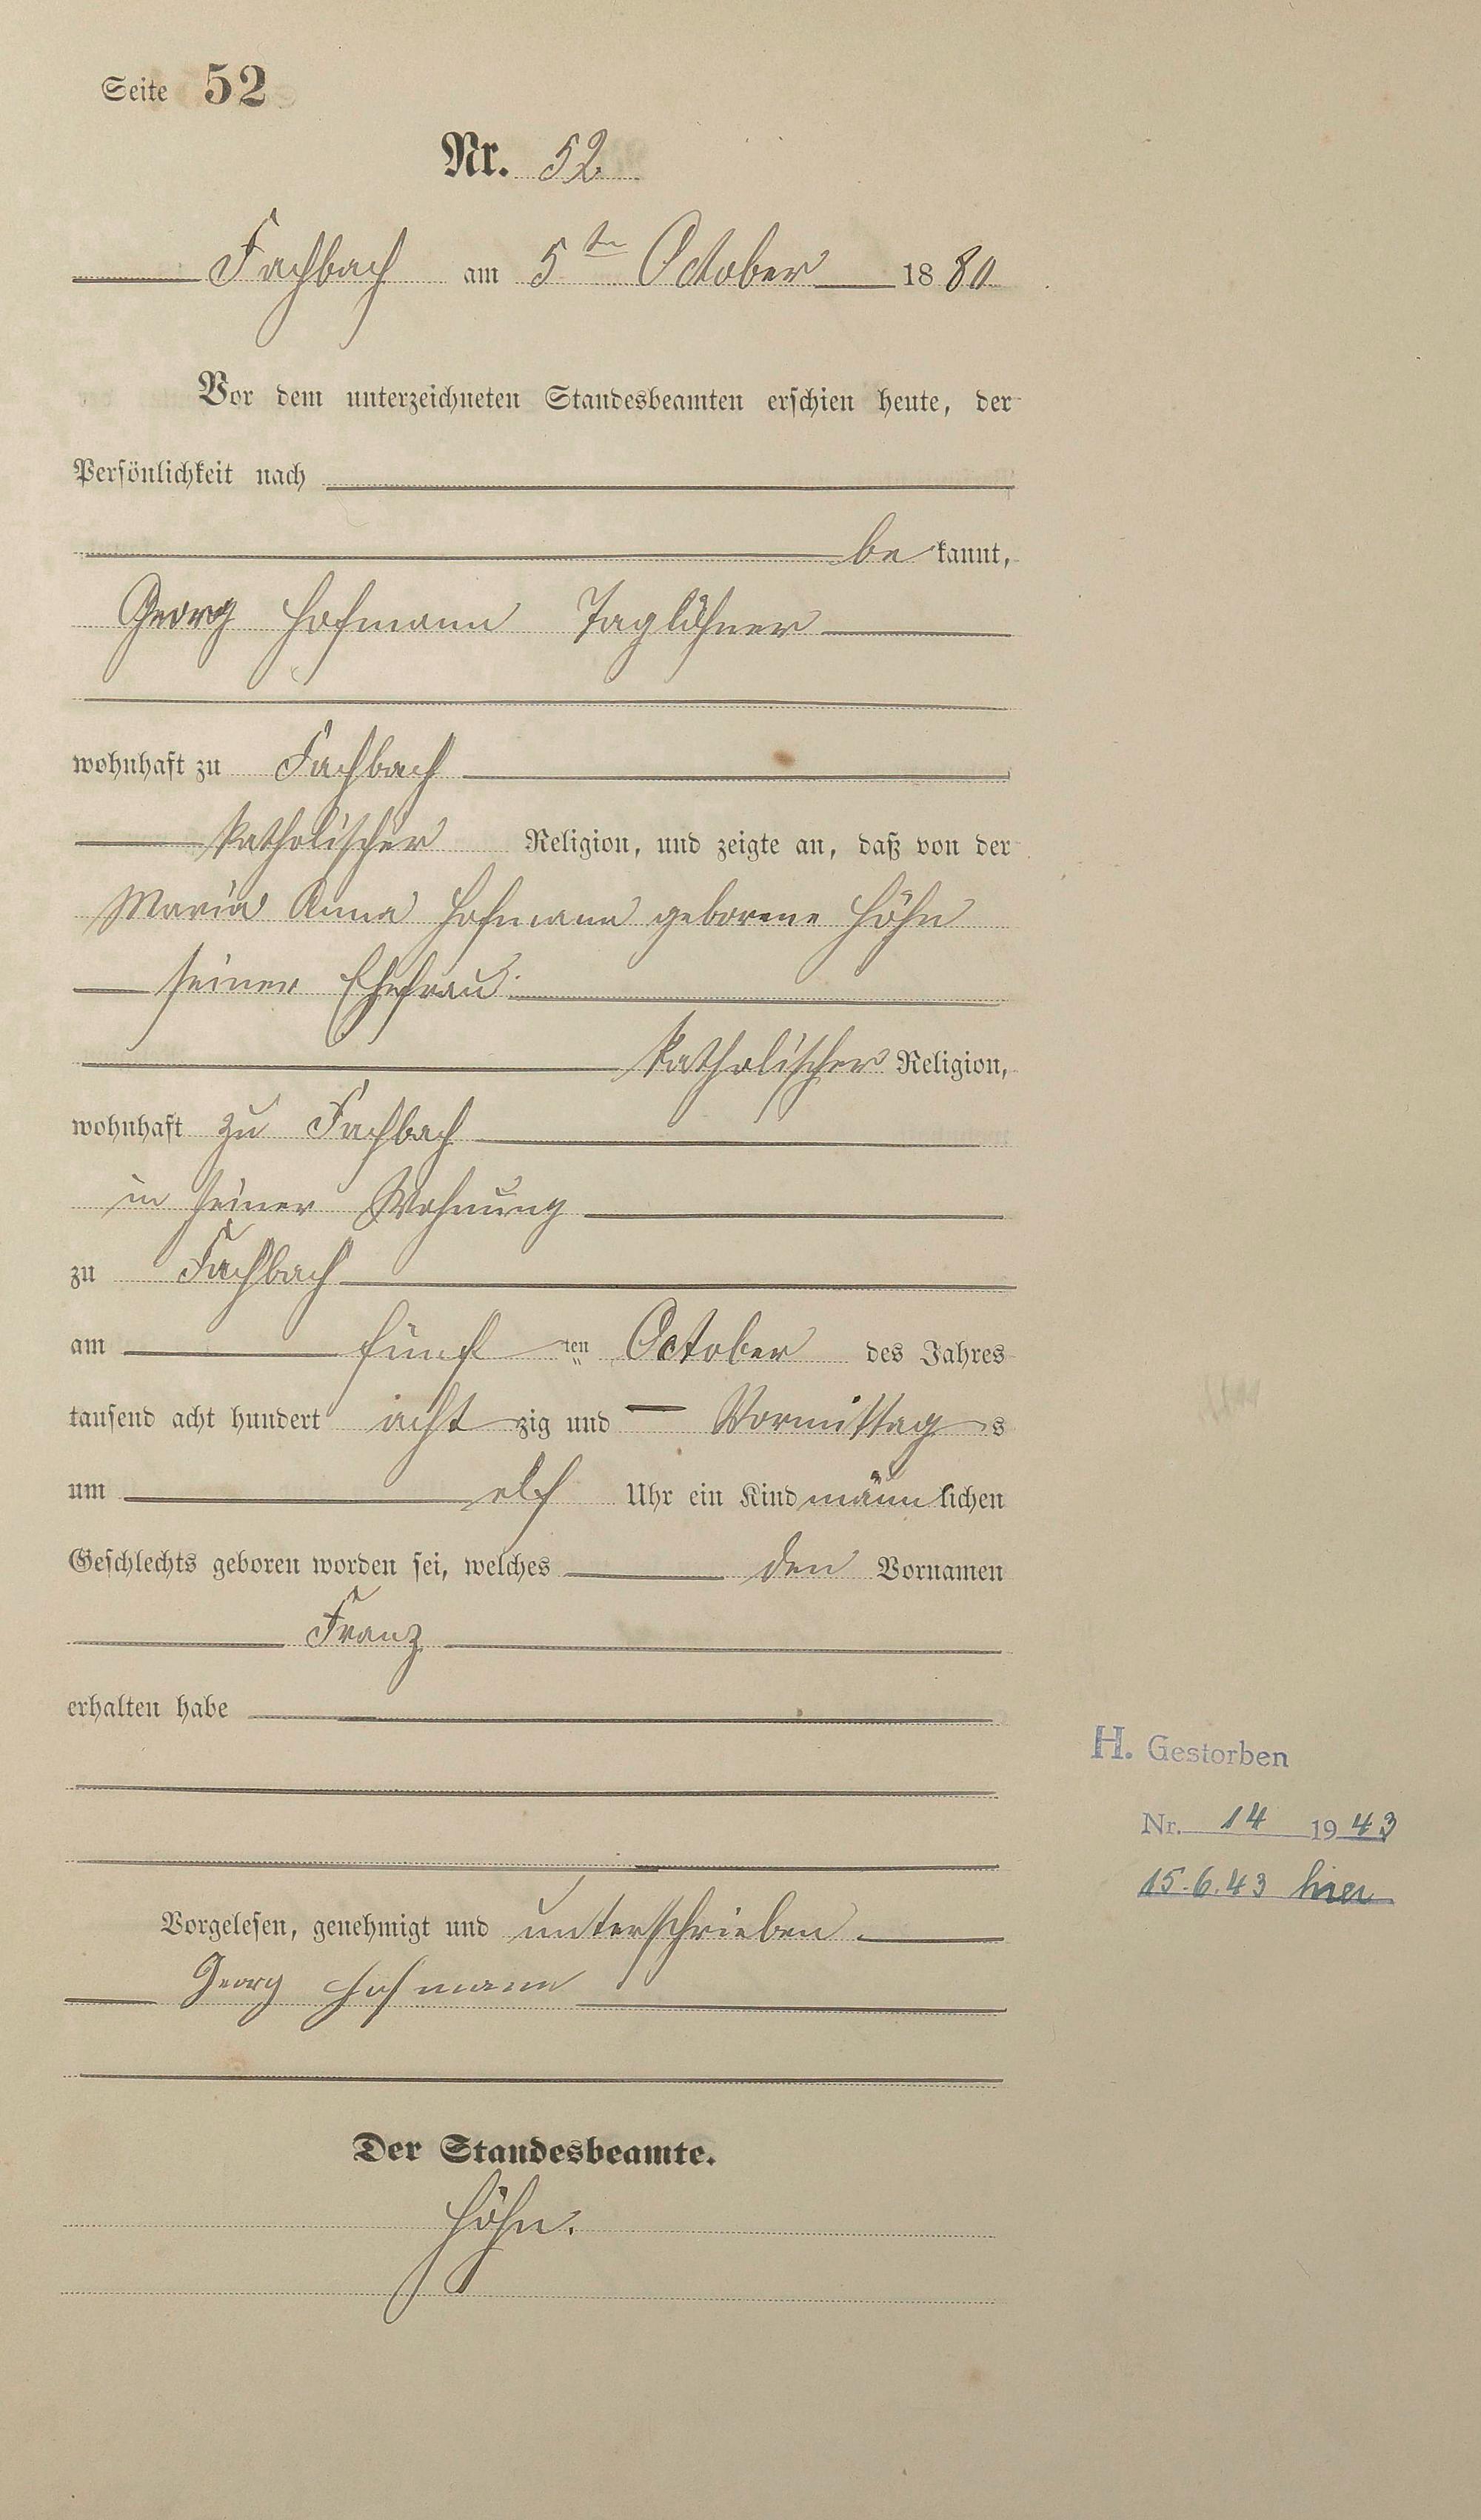 Seite 52
Nr. 52.
Fachbach am 5ten October 1880
Vor dem unterzeichneten Standesbeamten erschien heute, der
Persönlichkeit nach
bekannt,
Georg Hofmann Taglöhner
wohnhaft zu Fachbach
katholischer Religion, und zeigte an, daß von der
Maria Anna Hofmann geborene Höhn
seiner Ehefrau
katholischer Religion,
wohnhaft zu Fachbach
in seiner Wohnung
zu Fachbach
am fünften October des Jahres
tausend acht hundert achtzig und — Vormittags
um elf Uhr ein Kind männlichen
Geschlechts geboren worden sei, welches den Vornamen
Franz
erhalten habe
H. Gestorben
Nr. 14 1943
15.6.43 hier
Vorgelesen, genehmigt und unterschrieben.
Georg Hofmann
Der Standesbeamte.
Höhn.